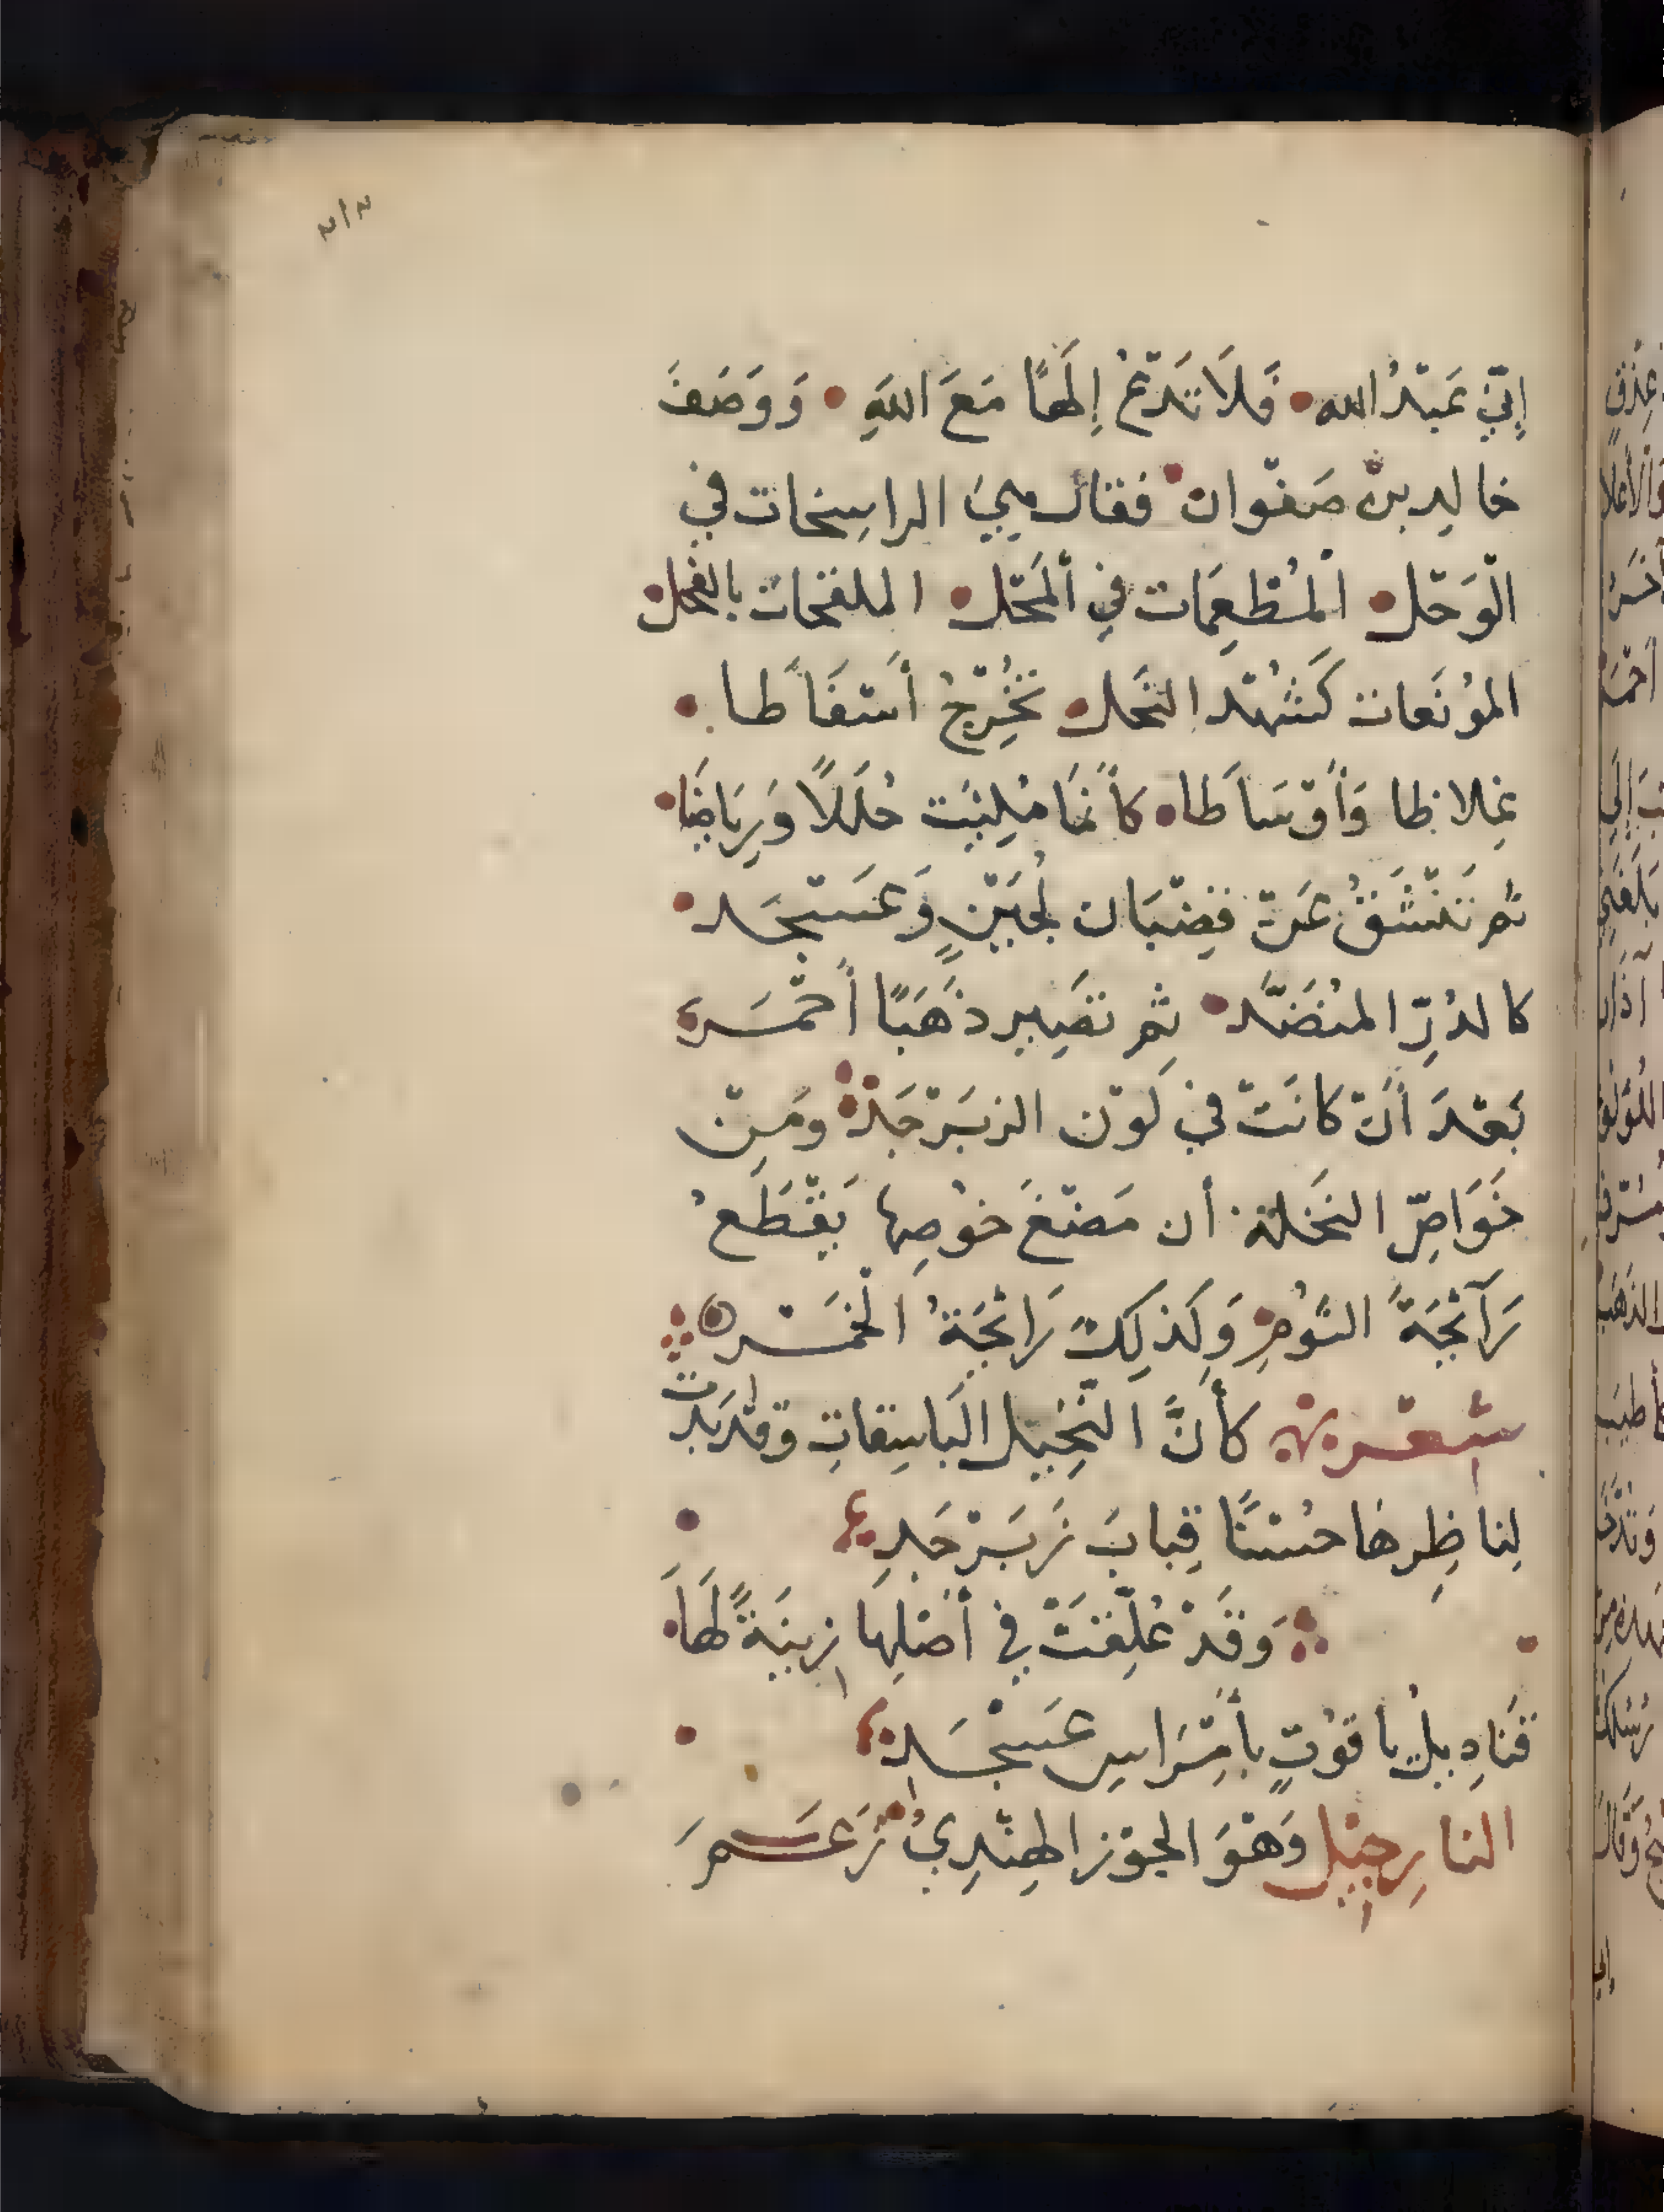 ٢١٢
إِنّي عَبْدُ الله فَلَا تَدْعُ إِلَهًا مَعَ اللَّهِ وَوَصَفَ
خالِد بن صَفْوان فقال هِيَ الراسِخات في
الْوَحْل اَلْمُطْعِمَات فِي اَلْمَحْل الملقحات بالفحل
المُونَعات كَشُهْد النَحل تُخْرِجُ أَسْفَاطا
غِلاظا وَأَوْسَاطا كأَنما مُلِئَت حُلَلًا وَرِيَاضًا
ثم تَنْشَقُّ عَنْ قضِبْبَان لُجَيْنٍ وَعَسْجَد
كالدُرِّ المنُضَّد ثم تصَيِير ذَهَبًا أَحْمَر
بَعْدَ أَنْ كانَتْ في لَوْن الزبَرْجَدْ ومَِنْ
خَوَاصِّ النَخلة أن مَضْغَ خوُصِها يَقْطَعُ
رَآئحَِةَ الثَّوُمِ وَكَذلِكَ رَائحَِةُ الْخَمْر
شعْر كأَنَّ النَّخِيل البَاسِقاتِ وقدْ بَدَت
لِناظِرها حُسْنًا قِبابَ زَبَرْجَدِ
وَقَدْ عُلِّقَتْ فِي أَصْلِهَا زِينَةً لَهَا
قَنَادِيلُ ياقوُتٍ بأَمْرَاسِ عَسْجَدِ
النارِجيْل وَهْوَ الجوْز الهِنْدِيُ زَعَمَ